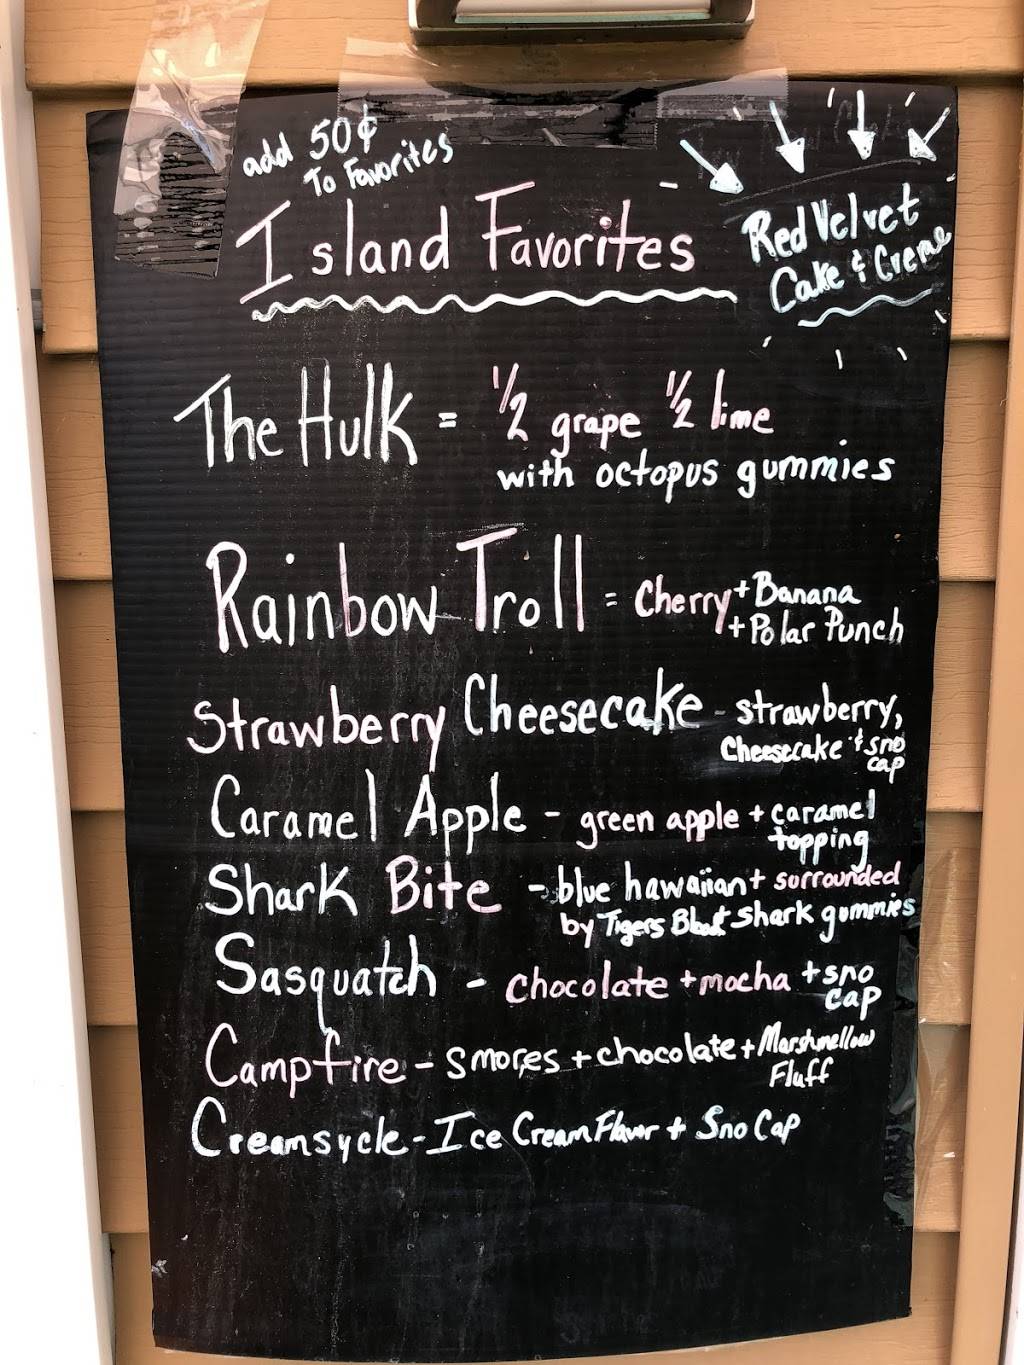 add 50¢
To Favorites
Island Favorites
Red Velvet
Cake & Creme
The Hulk = 1/2 grape 1/2 lime
with octopus gummies
Rainbow Troll = Cherry + Banana
+ Polar Punch
Strawberry Cheesecake - strawberry,
Cheesecake & sno
cap
Caramel Apple - green apple + caramel
topping
Shark Bite - blue hawaiian + surrounded
by Tigers Blood + shark gummies
Sasquatch - chocolate + mocha + sno
cap
Campfire - Smores + chocolate + Marshmellow
Fluff
Creamsycle - Ice Cream Flavor + Sno Cap